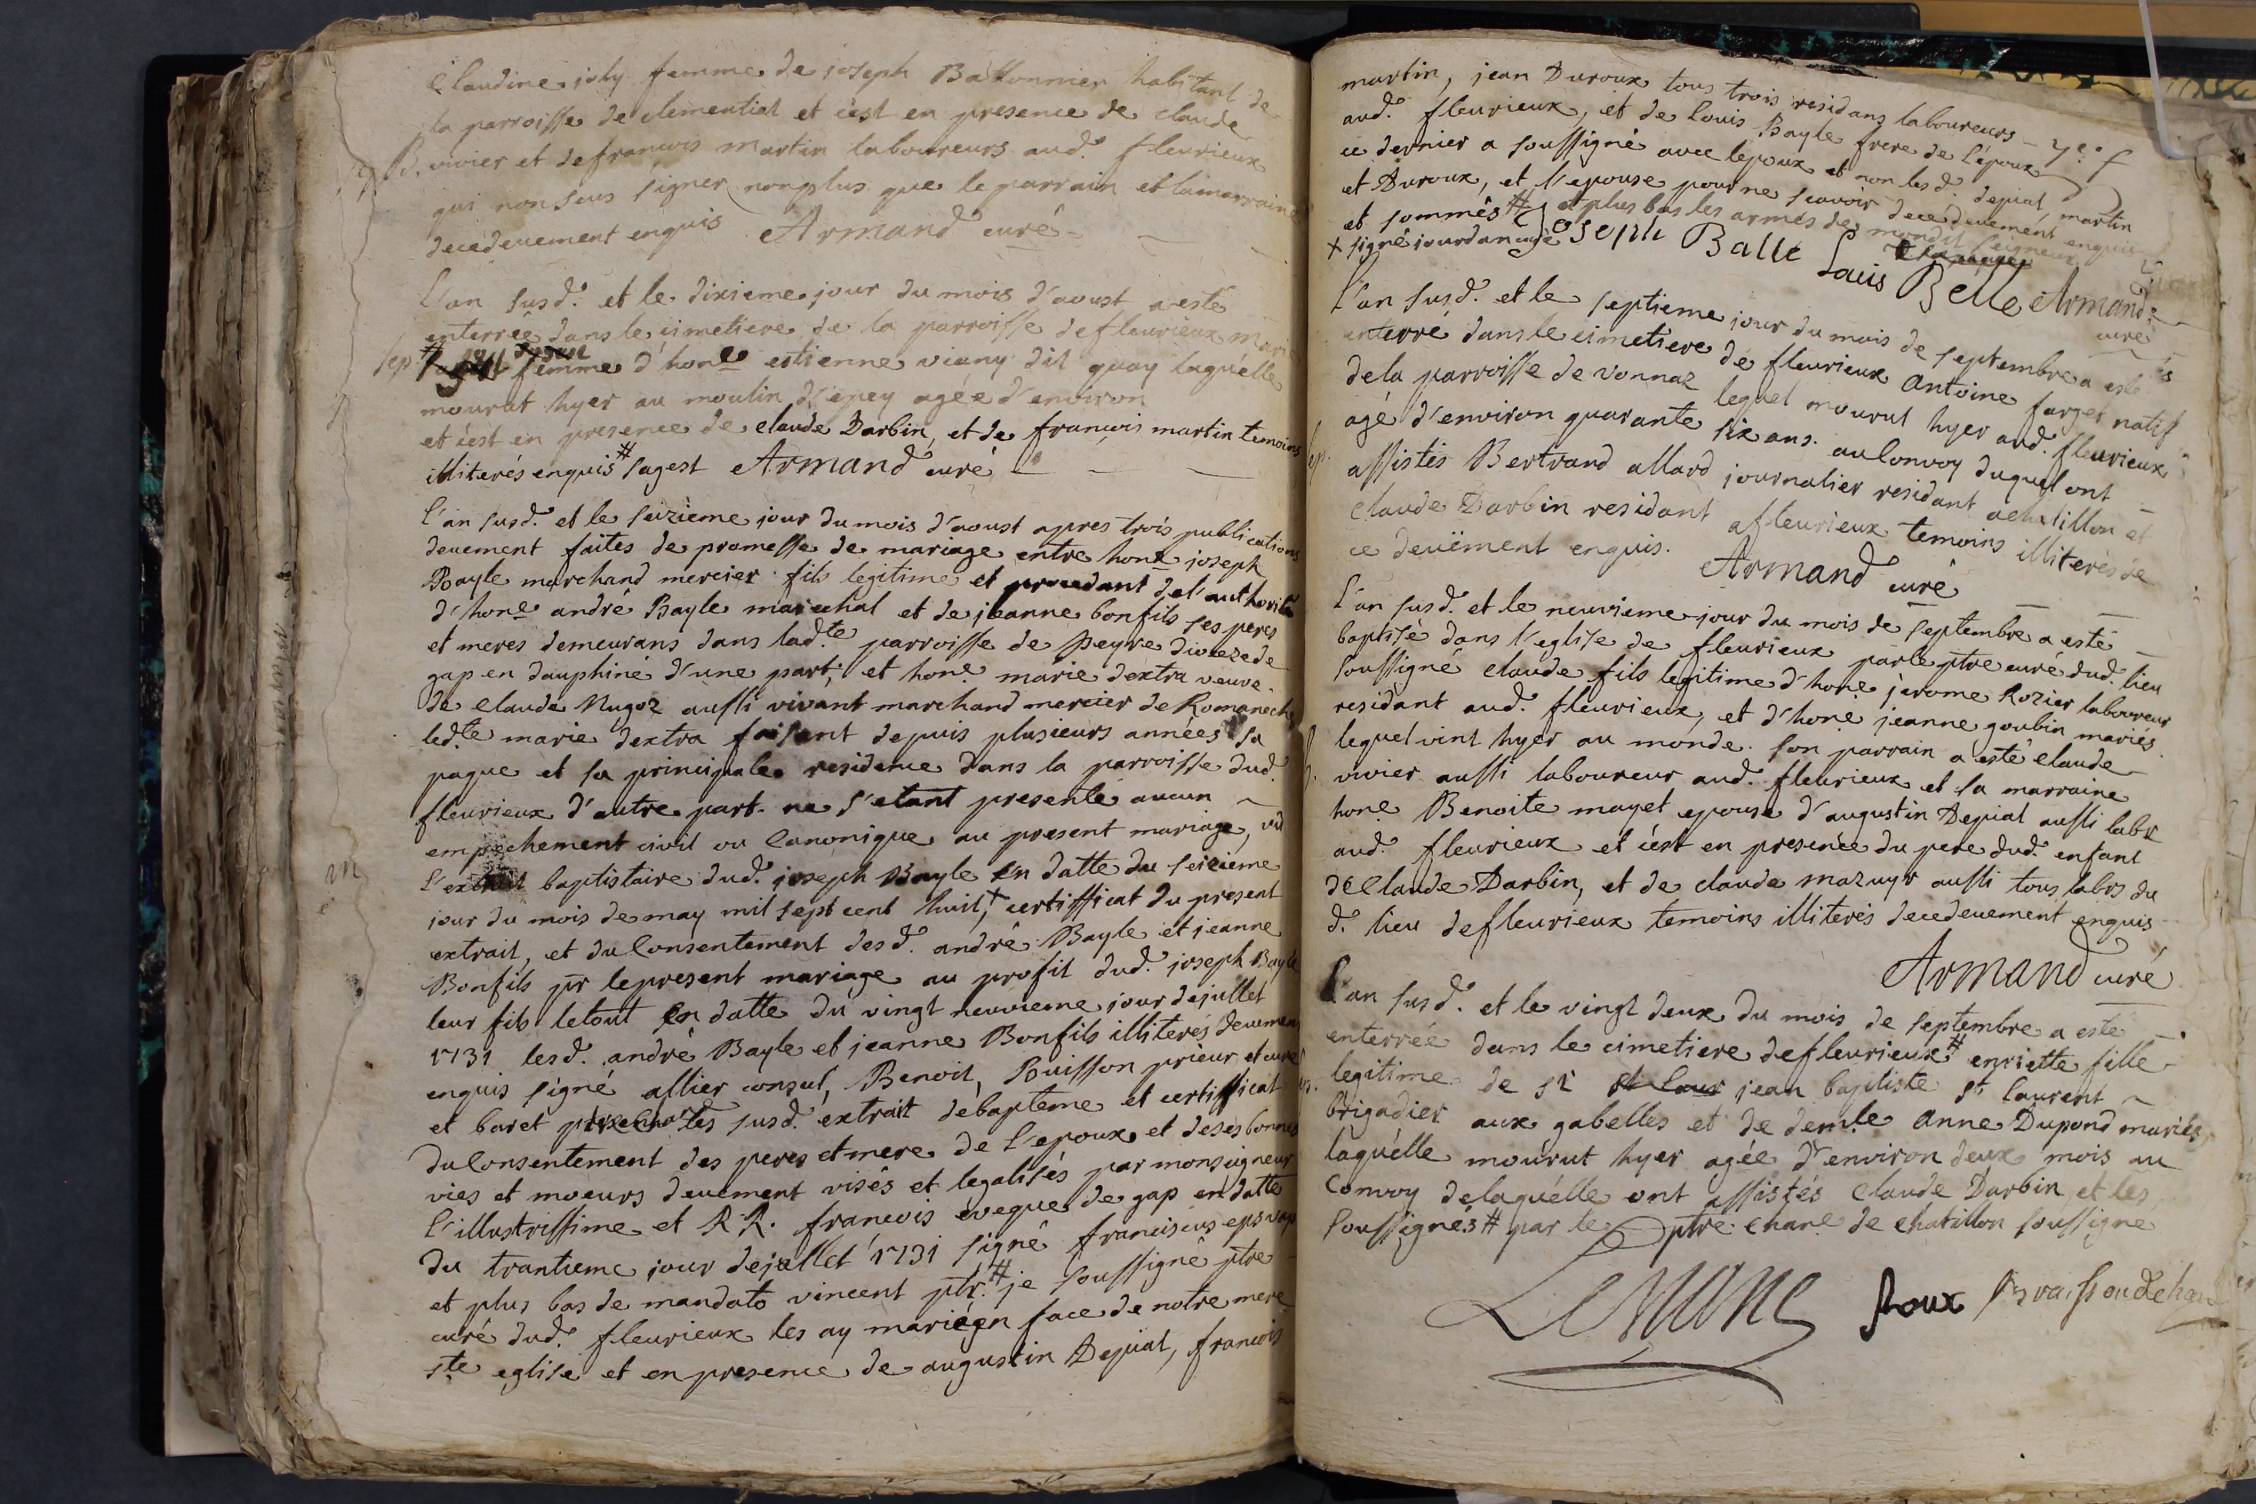 Claudine joly femme de joseph Battonnier habitant de
la parroisse de clementiat et c'est en presence de claude
B. vivier et de francois martin laboureurs aud. fleurieux
qui non sceus signer nonplus que le parrain et la marraine
decedeuement enquis Armand curé
L'an susd. et le dixieme jour du mois d'aoust a esté
enterrée dans le cimetiere de la parroisse de fleurieux marie
sep. # femme d'hone estienne viany dit quay laquélle
mourut hyer au moulin d'epey agée d'environ
et c'est en presence de claude Darbin, et de francois martin temoins
illiterés enquis # sagest Armand curé
L'an susd. et le seizieme jour du mois d'aoust apres trois publications
deuement faites de promesse de mariage entre hone joseph
Bayle marchand mercier fils legitime et procedant de l'authorité
d'hone andré Bayle marechal et de jeanne bonfils ses peres
et meres demeurans dans lad.te parroisse de peyre diocezede
gap en dauphiné d'une part, et hone marie dextra veuve
de claude Nugoz aussi vivant marchand mercier de Romaneche
led.te marie dextra faisant depuis plusieurs années sa
paque et sa principale residence dans la parroisse dud.
fleurieux d'autre part. ne s'etant presenté aucun
empechement civil ou Canonique au present mariage, vû
m
l'extrait baptistaire dud. joseph Bayle en datte du seizieme
jour du mois de may mil sept cent huit, + certifficat du present
extrait, et du Consentement desd. andré Bayle et jeanne
Bonfils pr le present mariage au profit dud. joseph Bayle
leur fils le tout en datte du vingt neuvieme jour de juillet
1731 lesd. andrê Bayle et jeanne Bonfils illiterés deuement
enquis signé allier consul, Benoit, Pouisson prieur et curé
et baret les susd. extrait de bapteme et certifficat
du Consentement des peres et mere de l'epoux et de ses bonnes
vies et moeurs deuement visés et legalisés par monseigneur
l'illustrissime et R R. francois eveque de gap en datte
du trantieme jour de juillet 1731 signé franciscus eps vap
et plus bas de mandato vincent ptr. # je soussigné ptre
curé dud. fleurieux les ay mariéen face de notre mere
ste eglise et en presence de augustin Depiat, francois
martin, jean Duroux tous trois residans laboureurs
aud. fleurieux, et de Louis Bayle frere de l'époux
ce dernier a soussigné avec l'epoux et non lesd. depiat, martin
et Duroux, et l'epouse pour ne scavoir decedeuement enquis
et sommés # et plus bas les armes de mondit seigneur
+ signé jourdan curé Joseph Balle Louis Belle Armand
curé
L'an susd. et le septieme jour du mois de septembre a esté
enterré dans le cimetiere de fleurieux Antoine farget natif
de la parroisse de vonnaz lequel mourut hyer aud. fleurieux
agé d'environ quarante six ans. au Convoy duquel ont
assistés Bertrand allard journalier residant a chatillon et
Claude Darbin residant a fleurieux temoins illiterés de
ce deuëment enquis. Armand curé
L'an susd. et le neuvieme jour du mois de septembre a esté
baptisé dans l'eglise de fleurieux par le ptre curé dud. lieu
soussigné claude fils legitime d'hone jérome Rozier laboureur
residant aud. fleurieux, et d'hone jeanne goubin mariés
lequel vint hyer au monde. son parrain a esté claude
vivier aussi laboureur aud. fleurieux et sa marraine
hone Benoite mayet epouse d'augustin Depiat aussi labr
aud. fleurieux et c'est en presence du pere dud. enfant
de Claude Darbin, et de claude mazuyr aussi tous labrs du
d. lieu de fleurieux temoins illiterés decedeuement enquis
Armand curé
L'an susd. et le vingt deux du mois de septembre a esté
enterrée dans le cimetiere de fleurieux # enriette fille
legitime de sr st laur jean baptiste st laurent
brigadier aux gabelles et de demle Anne Dupond mariés
laquélle mourut hyer agée d'environ deux mois au
Convoy de laquélle ont assistés Claude Darbin et les
soussignés # par le ptre chane de chatillon soussigné
Lemane Roux